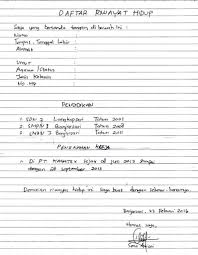 DAFTAR RIWAYAT HIDUP
Saya yang bertanda tangan di bawah ini :
Nama :
Tempat, Tanggal Lahir :
Alamat :
Umur :
Agama / Status :
Jenis Kelamin :
No. Hp :
PENDIDIKAN
1. SDN 2 Tahun
2. SMPN Banjarsari Tahun
3. SMAN 1 Banjarsari Tahun
PENGALAMAN KERJA
Di PT. KAHATEX sejak Juni 2013 sampai
dengan 28 September 2013
Demikian riwayat hidup ini saya buat dengan sebenar-benarnya.
Banjarsari, Februari 2016
Hormat saya,